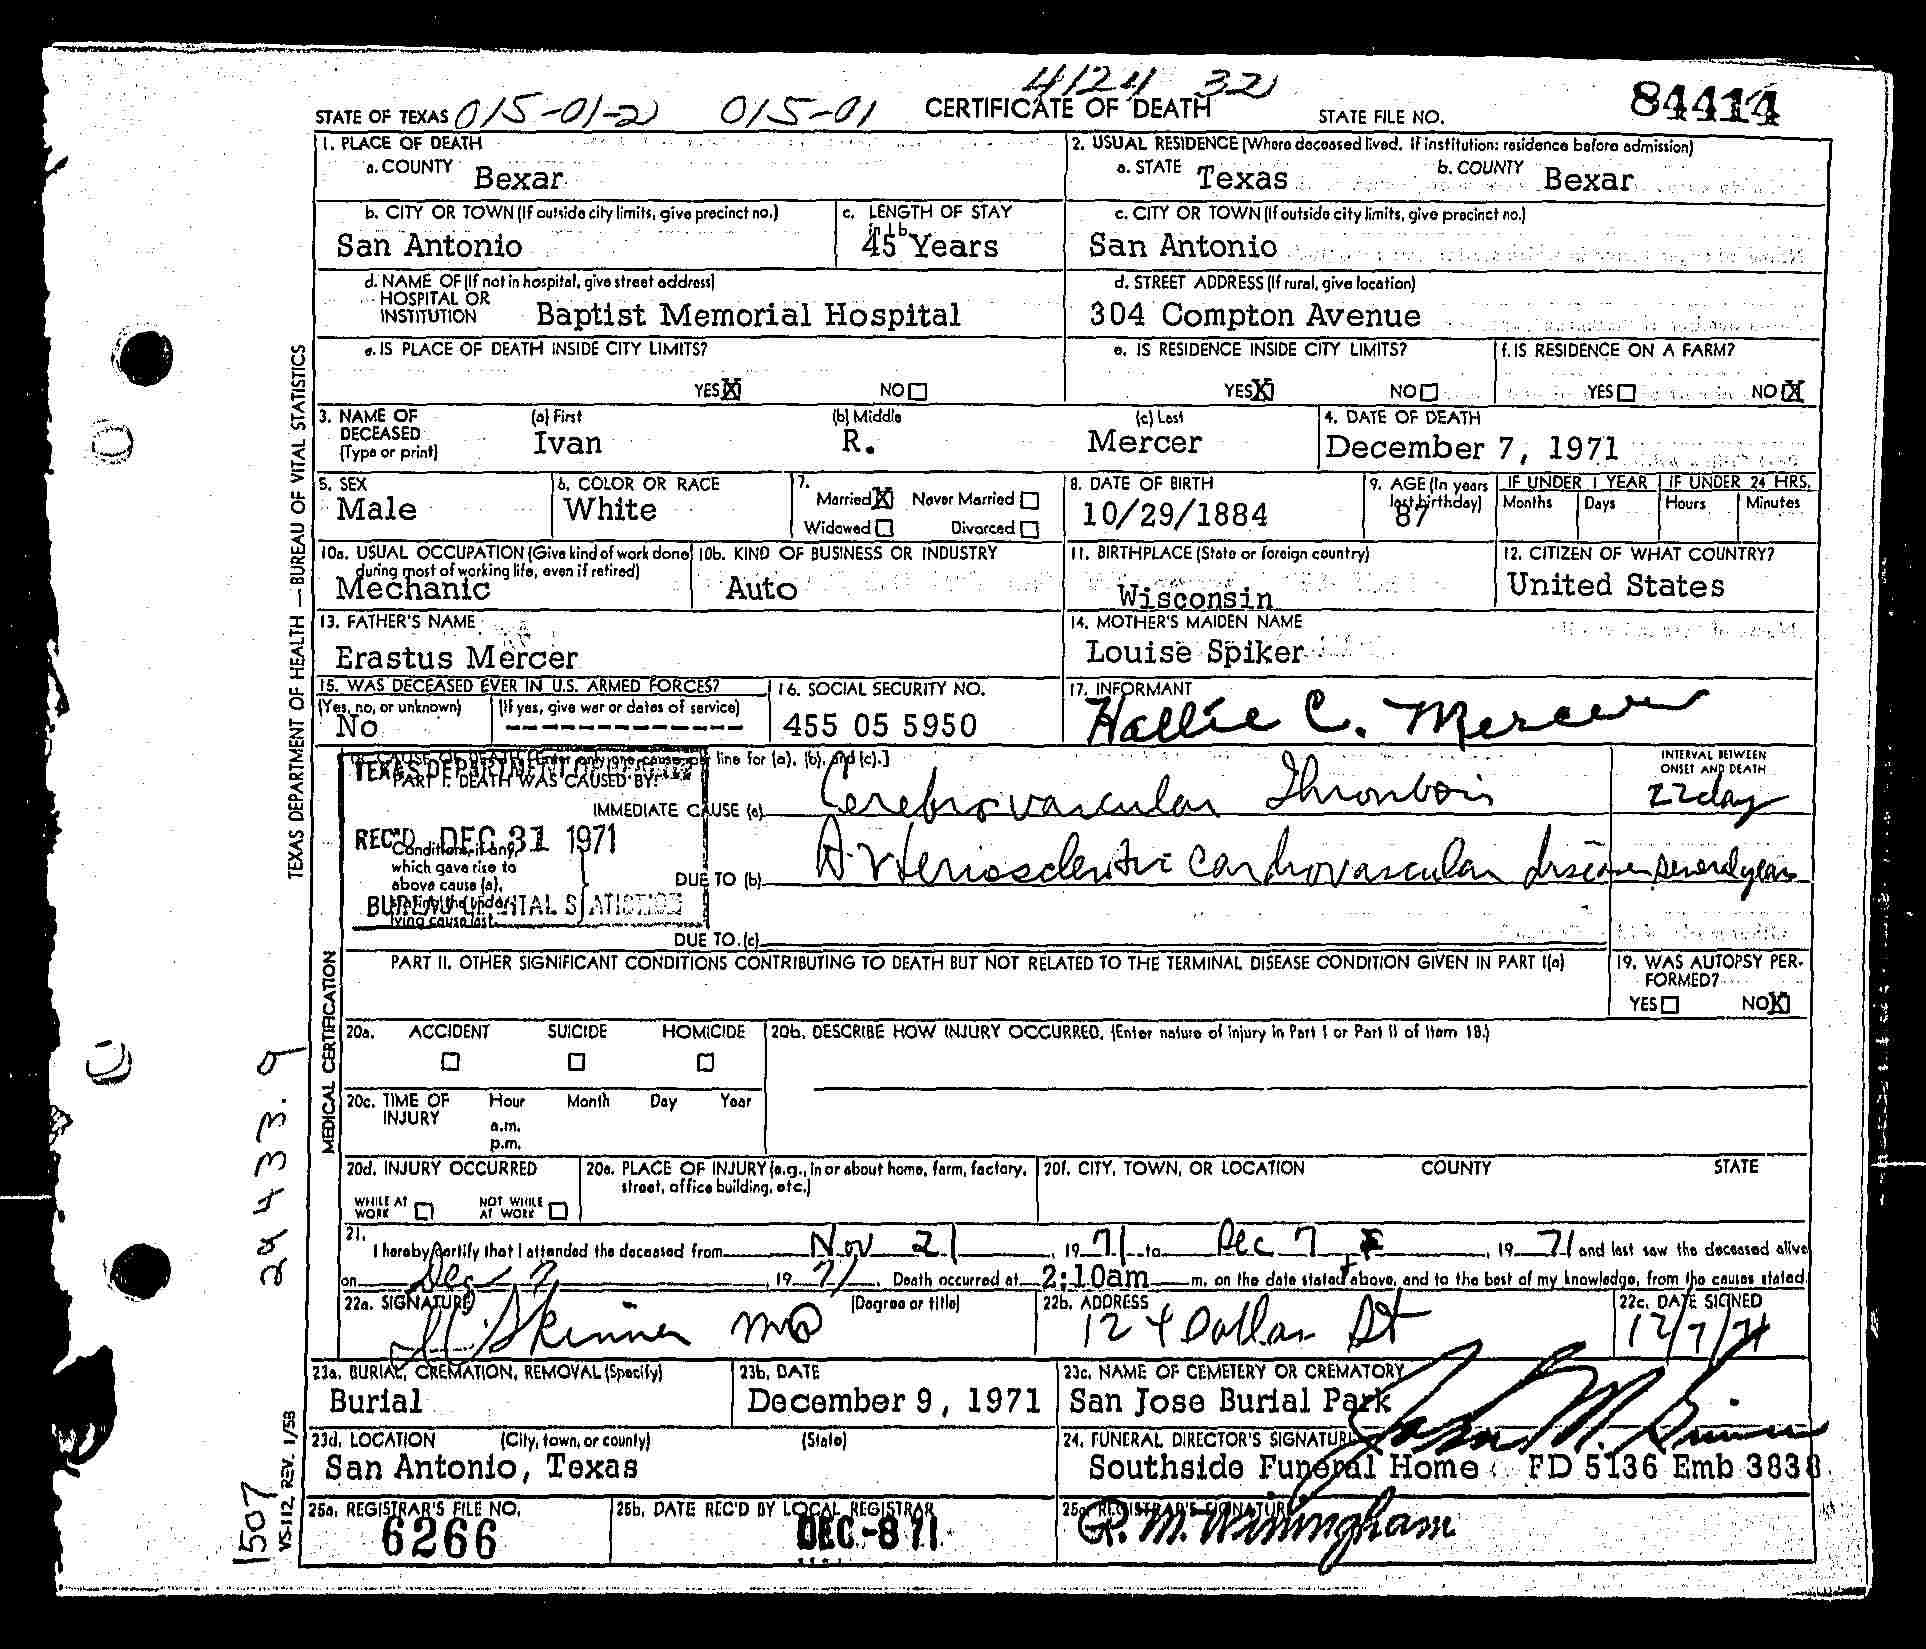 4124 32
STATE OF TEXAS 015-01-2 015-01 CERTIFICATE OF DEATH STATE FILE NO. 84414
1. PLACE OF DEATH
a. COUNTY Bexar
2. USUAL RESIDENCE (Where deceased lived. If institution: residence before admission)
a. STATE Texas b. COUNTY Bexar
b. CITY OR TOWN (If outside city limits, give precinct no.)
San Antonio
c. LENGTH OF STAY
45 Years
c. CITY OR TOWN (If outside city limits, give precinct no.)
San Antonio
d. NAME OF (If not in hospital, give street address)
HOSPITAL OR
INSTITUTION Baptist Memorial Hospital
d. STREET ADDRESS (If rural, give location)
304 Compton Avenue
e. IS PLACE OF DEATH INSIDE CITY LIMITS?
YES X NO
e. IS RESIDENCE INSIDE CITY LIMITS?
YES X NO
f. IS RESIDENCE ON A FARM?
YES NO X
3. NAME OF DECEASED (Type or print)
(a) First (b) Middle (c) Last
Ivan R. Mercer
4. DATE OF DEATH
December 7, 1971
5. SEX
Male
6. COLOR OR RACE
White
7.
Married X Never Married
Widowed Divorced
8. DATE OF BIRTH
10/29/1884
9. AGE (In years last birthday)
87
IF UNDER 1 YEAR IF UNDER 24 HRS.
Months Days Hours Minutes
10a. USUAL OCCUPATION (Give kind of work done
during most of working life, even if retired)
Mechanic
10b. KIND OF BUSINESS OR INDUSTRY
Auto
11. BIRTHPLACE (State or foreign country)
Wisconsin
12. CITIZEN OF WHAT COUNTRY?
United States
13. FATHER'S NAME
Erastus Mercer
14. MOTHER'S MAIDEN NAME
Louise Spiker
15. WAS DECEASED EVER IN U.S. ARMED FORCES?
(Yes, no, or unknown) (If yes, give war or dates of service)
No -------------
16. SOCIAL SECURITY NO.
455 05 5950
17. INFORMANT
Hallie C. Mercer
CAUSE OF DEATH [Enter only one cause per line for (a), (b), and (c).]
TEXAS DEPARTMENT
PART I. DEATH WAS CAUSED BY:
INTERVAL BETWEEN
ONSET AND DEATH
IMMEDIATE CAUSE (a) Cerebrovascular Thrombosis 22 day
REC'D DEC 31 1971
Conditions, if any,
which gave rise to
above cause (a),
stating the under-
lying cause last.
BUREAU OF VITAL STATISTICS
DUE TO (b) Arteriosclerotic Cardiovascular disease several years
DUE TO (c)
PART II. OTHER SIGNIFICANT CONDITIONS CONTRIBUTING TO DEATH BUT NOT RELATED TO THE TERMINAL DISEASE CONDITION GIVEN IN PART I(a)
19. WAS AUTOPSY PER-
FORMED?
YES NO X
20a. ACCIDENT SUICIDE HOMICIDE
20b. DESCRIBE HOW INJURY OCCURRED. (Enter nature of injury in Part I or Part II of Item 18.)
20c. TIME OF INJURY Hour Month Day Year
a.m.
p.m.
20d. INJURY OCCURRED
WHILE AT WORK NOT WHILE AT WORK
20e. PLACE OF INJURY (e.g., in or about home, farm, factory,
street, office building, etc.)
20f. CITY, TOWN, OR LOCATION COUNTY STATE
21.
I hereby certify that I attended the deceased from Nov 21, 1971 to Dec 7, 1971 and last saw the deceased alive
on Dec 7, 1971. Death occurred at 2:10am m. on the date stated above, and to the best of my knowledge, from the causes stated.
22a. SIGNATURE (Degree or title)
Skinner MD
22b. ADDRESS
124 Dallas St
22c. DATE SIGNED
12/7/71
23a. BURIAL, CREMATION, REMOVAL (Specify)
Burial
23b. DATE
December 9, 1971
23c. NAME OF CEMETERY OR CREMATORY
San Jose Burial Park
23d. LOCATION (City, town, or county) (State)
San Antonio, Texas
24. FUNERAL DIRECTOR'S SIGNATURE
Southside Funeral Home FD 5136 Emb 3838
25a. REGISTRAR'S FILE NO.
6266
25b. DATE REC'D BY LOCAL REGISTRAR
DEC -8 71
25c. REGISTRAR'S SIGNATURE
TEXAS DEPARTMENT OF HEALTH — BUREAU OF VITAL STATISTICS
MEDICAL CERTIFICATION
VS-112, REV. 1/58
29 433.9
1507